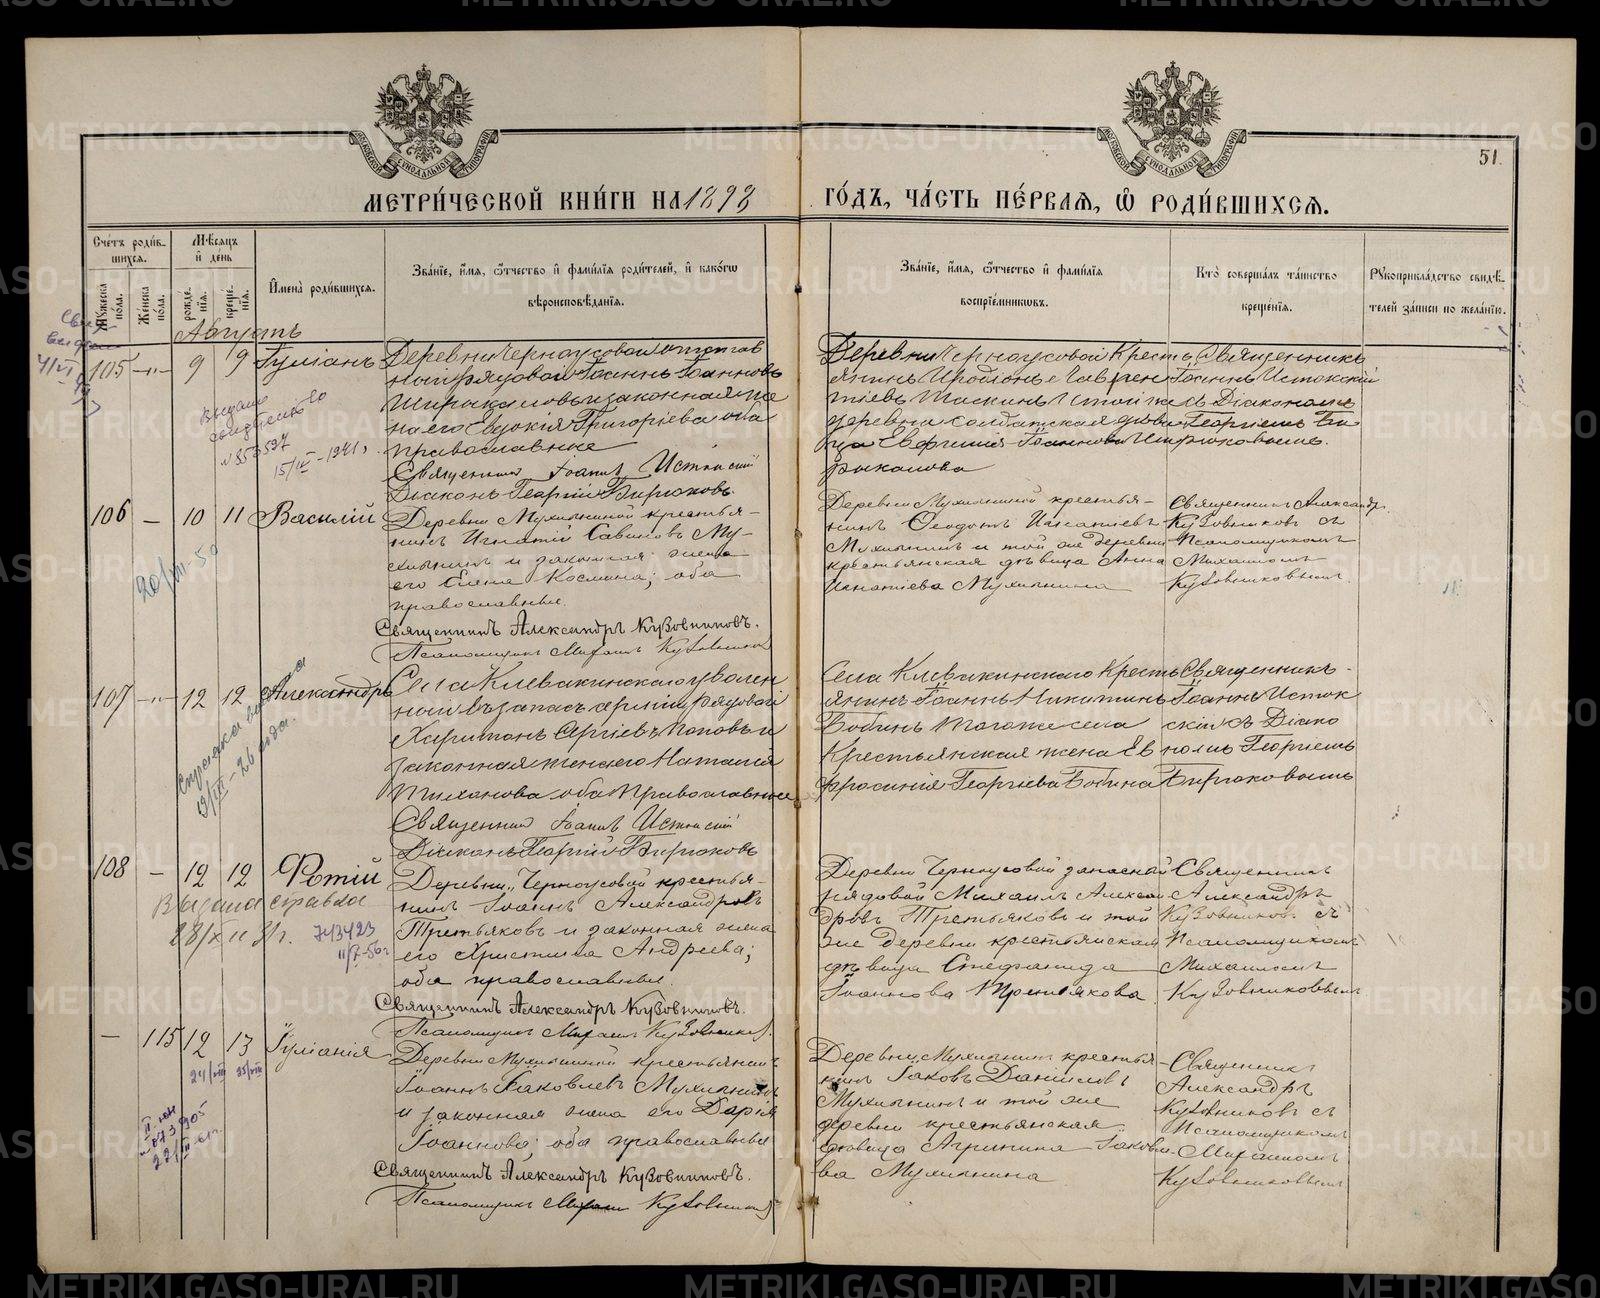 51.
МЕТРИ́ЧЕСКОЙ КНИ́ГИ НА 1898
ГО́ДЪ, ЧА́СТЬ ПЕ́РВАѦ, Ѡ҆ РОДИ́ВШИХСѦ.
Сче́тъ роди́вшихсѧ.
Мꙋ́жеска по́ла.
Же́нска по́ла.
Мѣ́сѧцъ и҆ де́нь
рожде́нїѧ.
креще́нїѧ.
И҆мена̀ роди́вшихсѧ.
Зва́нїе, и҆́мѧ, ѻ҆́тчество и҆ фами́лїѧ роди́телей, и҆ како́гѡ
вѣроисповѣ́данїѧ.
Зва́нїе, и҆́мѧ, ѻ҆́тчество и҆ фами́лїѧ
воспрїе́мниковъ.
Кто̀ соверша́лъ та́инство
креще́нїѧ.
Рꙋкоприкла́дство свидѣ́телей за́писи по жела́нїю.
Августъ
105 -"- 9 9 Гуліанъ
Деревни Черноусовой отстав
ной рядовой Іоаннъ Іоанновъ
Ширыкаловъ и законная же
на его Евдокія Григоріева оба
православные
Священникъ Іоаннъ Истокскій
Діаконъ Георгій Бирюковъ.
Деревни Черноусовой Кресть
янинъ Иродіонъ Гаврен
тіевъ Тоскинъ и той же
деревни солдатская дѣви
ца Евфимія Іоаннова Ши
рыкалова
Священникъ
Іоаннъ Истокскій
съ Діакономъ
Георгіемъ Би
рюковымъ.
Выдано
свидѣтельство
15/IV - 1941
106 — 10 11 Василій
Деревни Мухлыниной крестья-
нинъ Игнатій Савиновъ Му-
хлынинъ и законная жена
его Елена Космина; оба
православные.
Священникъ Александръ Кузовниковъ.
Псаломщикъ Михаилъ Кузовников
Деревни Мухлыниной крестья-
нинъ Ѳеодотъ Игнатіевъ
Мухлынинъ и той же деревни
крестьянская дѣвица Анна
Игнатіева Мухлынина
Священникъ Александр.
Кузовниковъ съ
Псаломщикомъ
Михаиломъ
Кузовниковымъ.
20/VIII-50
107 -"- 12 12 Александръ
Села Клевакинскаго уволен
ной въ запасъ арміи рядовой
Харитонъ Сергіевъ Поповъ и
законная жена его Наталія
Тиханова оба Православные
Священникъ Іоаннъ Истокскій
Діаконъ Георгій Бирюковъ
Села Клевакинскаго Кресть
янинъ Іоаннъ Никитинъ
Бобинъ того же села
Крестьянская жена Ев
фросинія Георгіева Бобина
Священникъ
Іоаннъ Исток
скій съ Діако
номъ Георгіемъ
Бирюковымъ
Справка выдана
26 года.
108 — 12 12 Фотій
Деревни Черноусовой крестья-
нинъ Іоаннъ Александровъ
Третьяковъ и законная жена
его Христина Андреева;
оба православные.
Священникъ Александръ Кузовниковъ.
Псаломщикъ Михаилъ Кузовников.
Деревни Черноусовой запасной
рядовой Михаилъ Алексан
дровъ Третьяковъ и той
же деревни крестьянская
дѣвица Стефанида
Іоаннова Третьякова.
Священникъ
Александръ
Кузовниковъ съ
Псаломщикомъ
Михаиломъ
Кузовниковымъ
Выдана справка
28/XII 31г.
743423
— 115 12 13 Іуліанія
Деревни Мухлыниной крестьянинъ
Іоаннъ Іаковлевъ Мухлынинъ
и законная жена его Дарія
Іоаннова; оба православные
Священникъ Александръ Кузовниковъ.
Псаломщикъ Михаилъ Кузовников
Деревни Мухлынин крестья
нинъ Іаковъ Даніиловъ
Мухлынинъ и той же
деревни крестьянская
дѣвица Агрипина Іаковле-
ва Мухлынина
Священникъ
Александръ
Кузовниковъ съ
Псаломщикомъ
Михаиломъ
Кузовниковымъ
24/VIII 25/VIII
METRIKI.GASO-URAL.RU